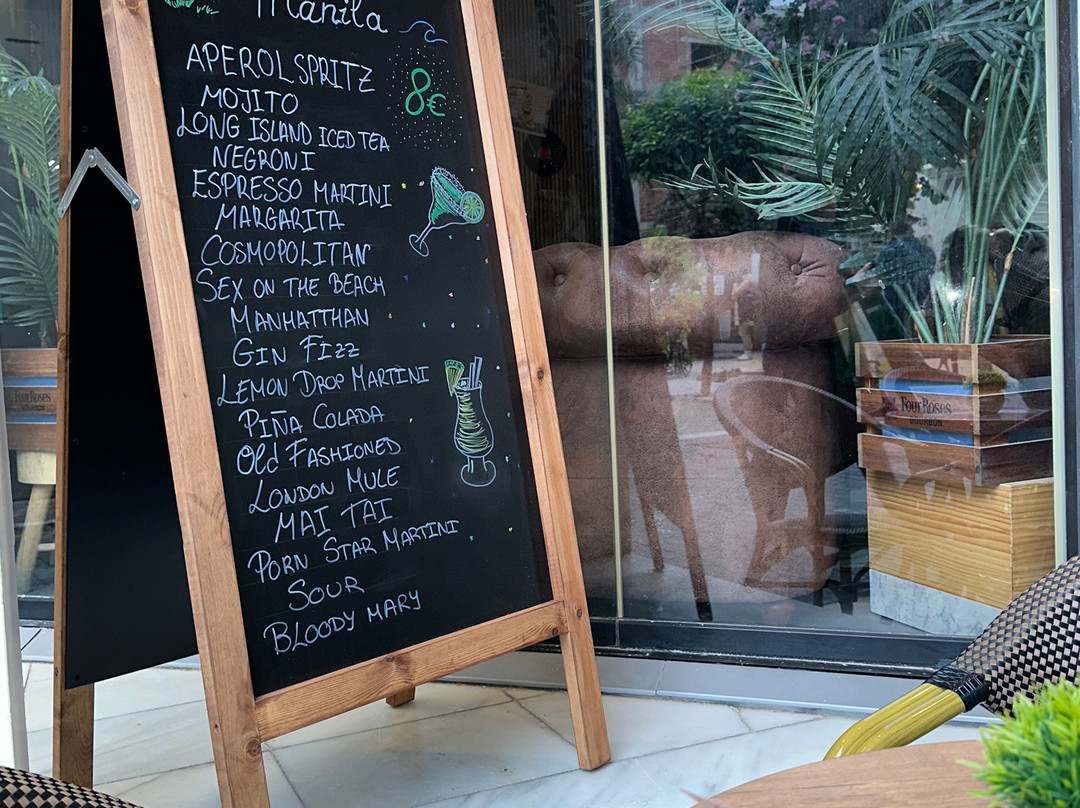 Manila
APEROL SPRITZ
8€
MOJITO
LONG ISLAND ICED TEA
NEGRONI
ESPRESSO MARTINI
MARGARITA
COSMOPOLITAN
SEX ON THE BEACH
MANHATTHAN
GIN FIZZ
LEMON DROP MARTINI
PIÑA COLADA
Old FASHIONED
LONDON MULE
MAI TAI
PORN STAR MARTINI
SOUR
BLOODY MARY
FourRoses
BOURBON
FourRoses